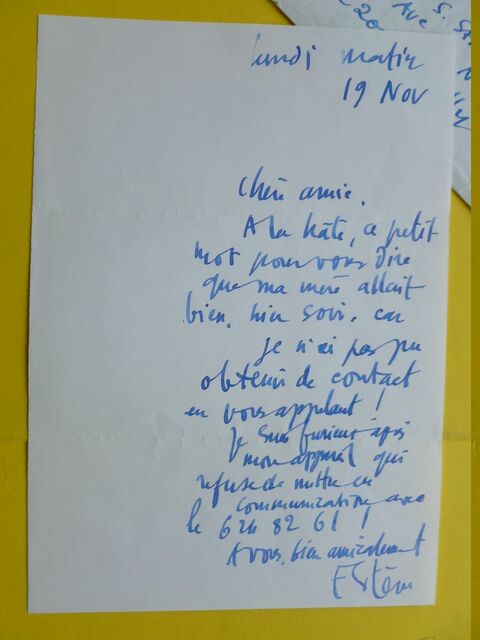 lundi matin
19 Nov
Chère amie,
A la hâte, ce petit
mot pour vous dire
que ma mère allait
bien, hier soir, car
je n'ai pas pu
obtenir de contact
en vous appelant !
Je suis furieux après
mon appareil qui
refuse de mettre en
communication avec
le 624 82 61 !
A vous, bien amicalement